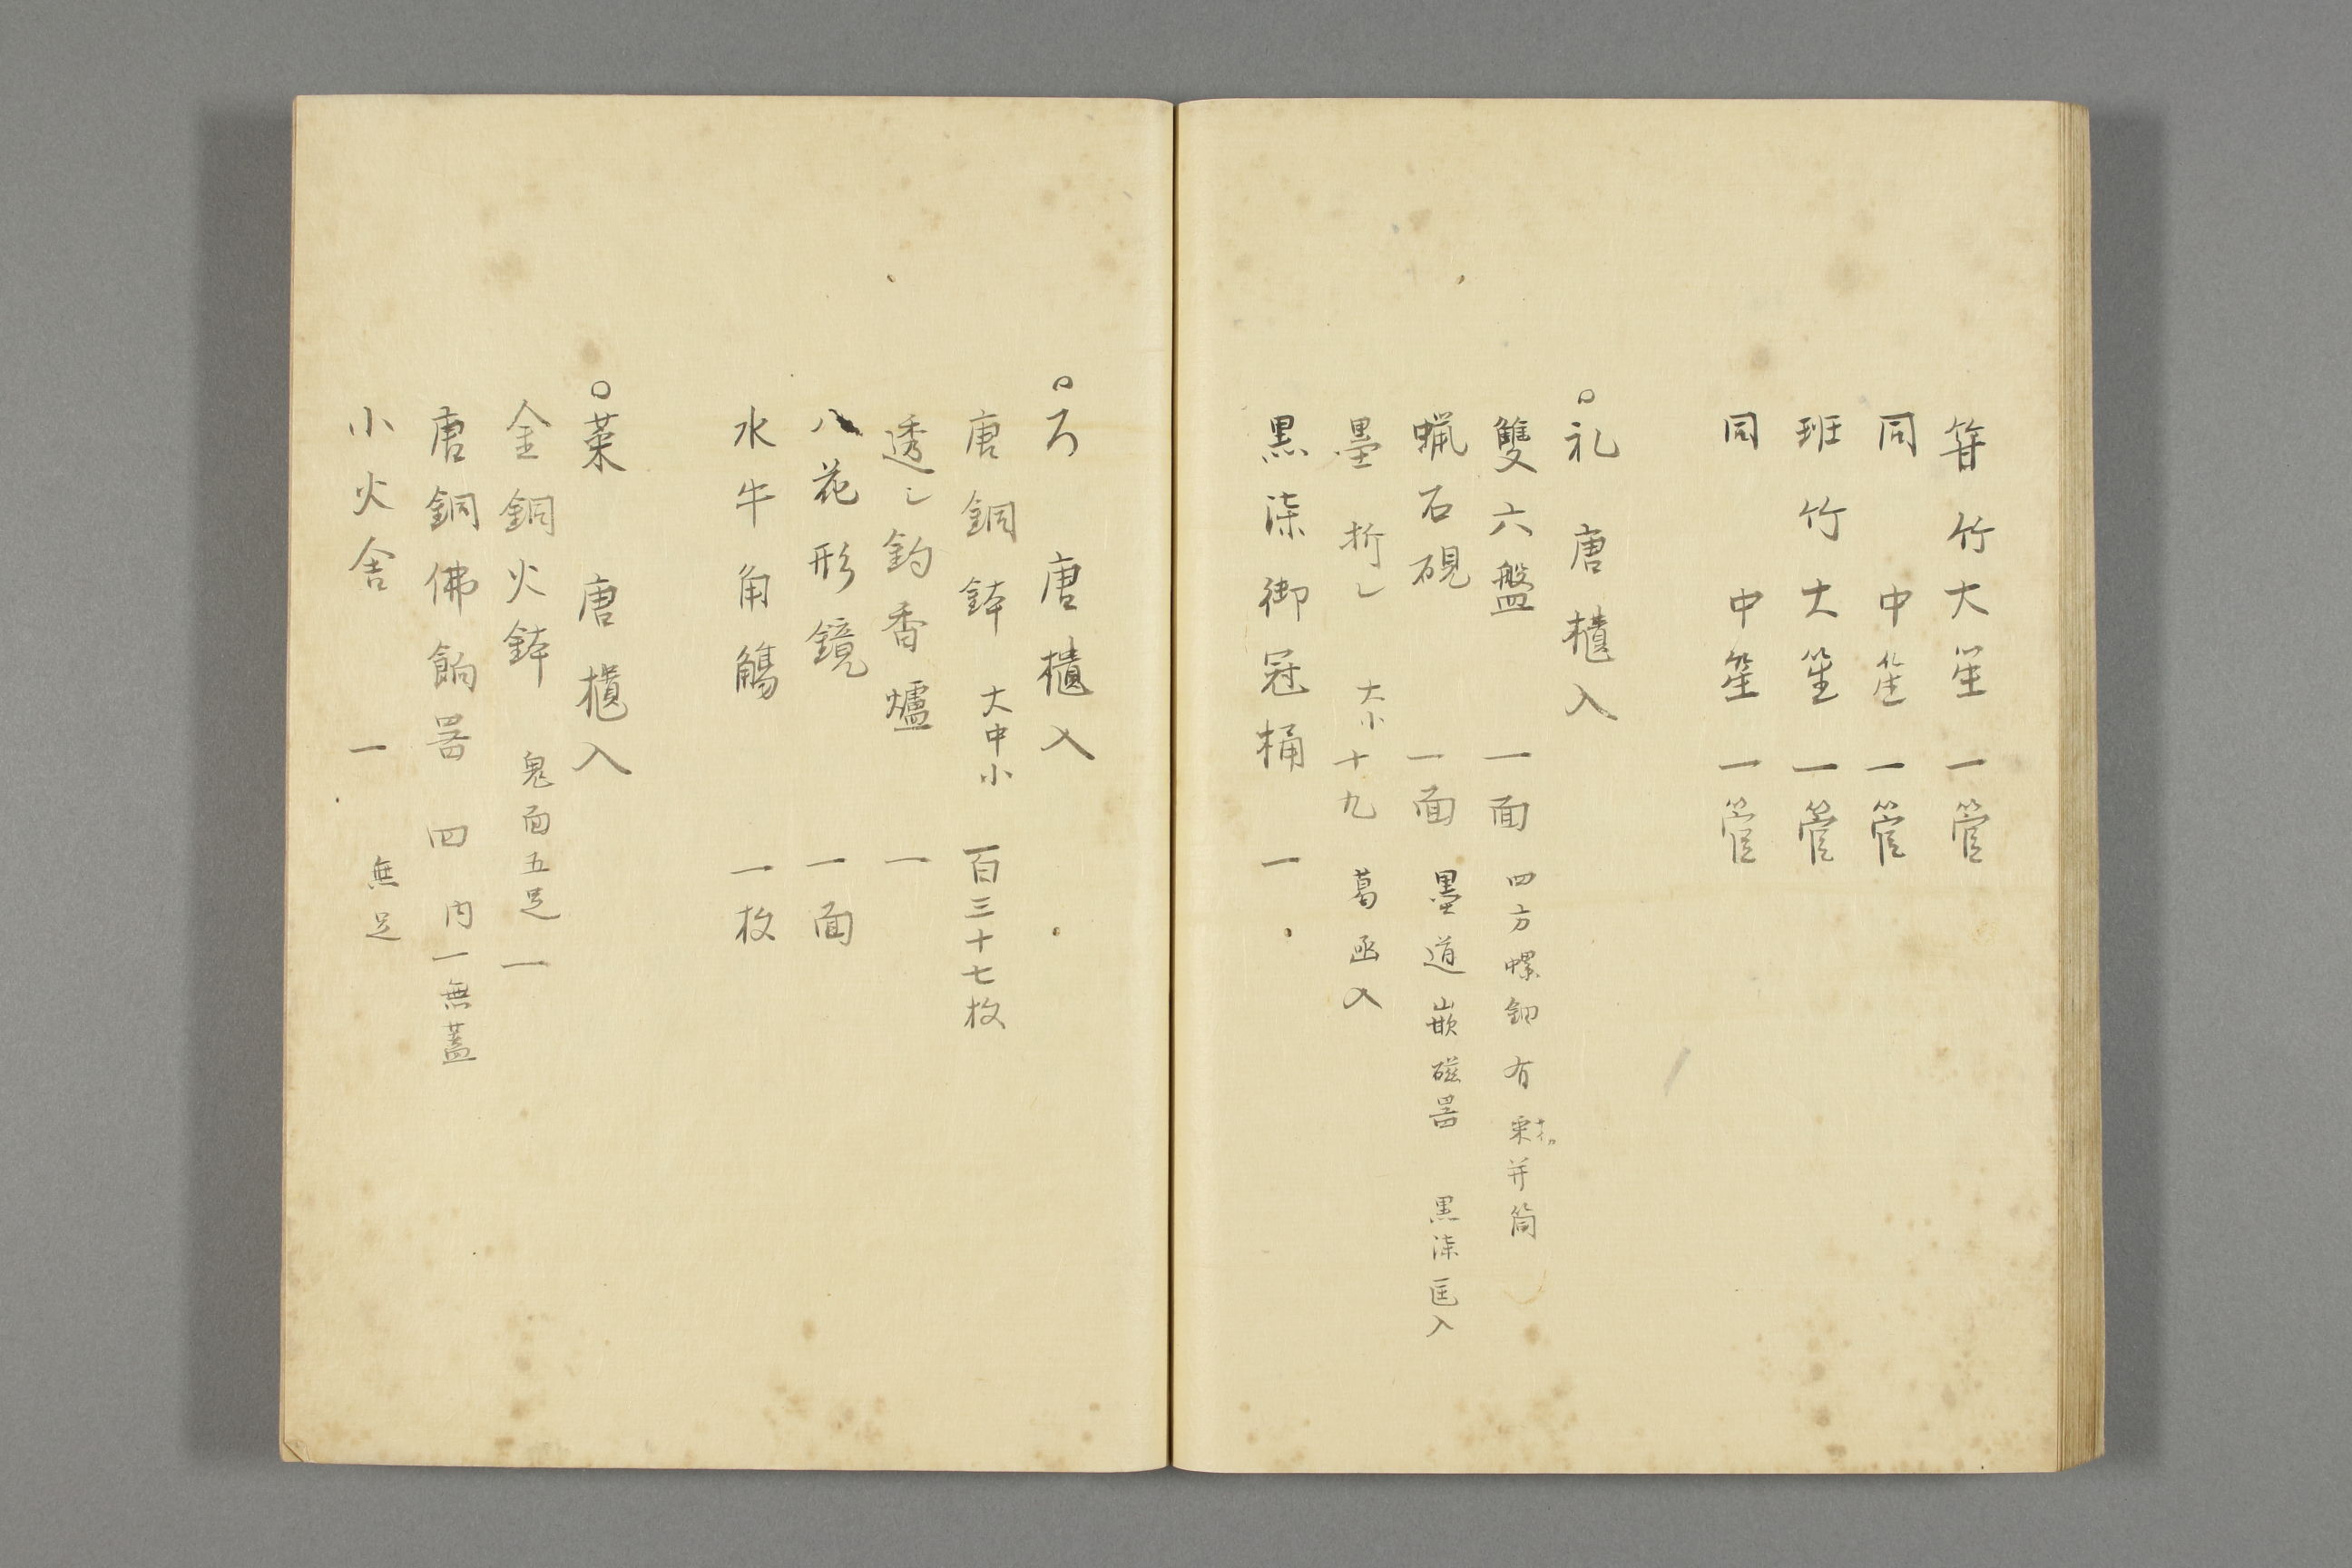 竹大笙 一管
同 中笙 一管
班竹大笙 一管
同 中笙 一管
○礼 唐櫃入
雙六盤 一面 四方螺鈿有 并筒
蝋石硯 一面 墨道嵌磁器 黒漆匡入
墨 折レ 大小 十九 葛凾入
黒漆御冠桶 一
○ろ 唐櫃入
唐銅鉢 大中小 百三十七枚
透シ釣香爐 一
八花形鏡 一面
水牛角觴 一枚
○菜 唐櫃入
金銅火鉢 鬼面五足 一
唐銅佛餉器 四 内一無蓋
小火舎 一 無足